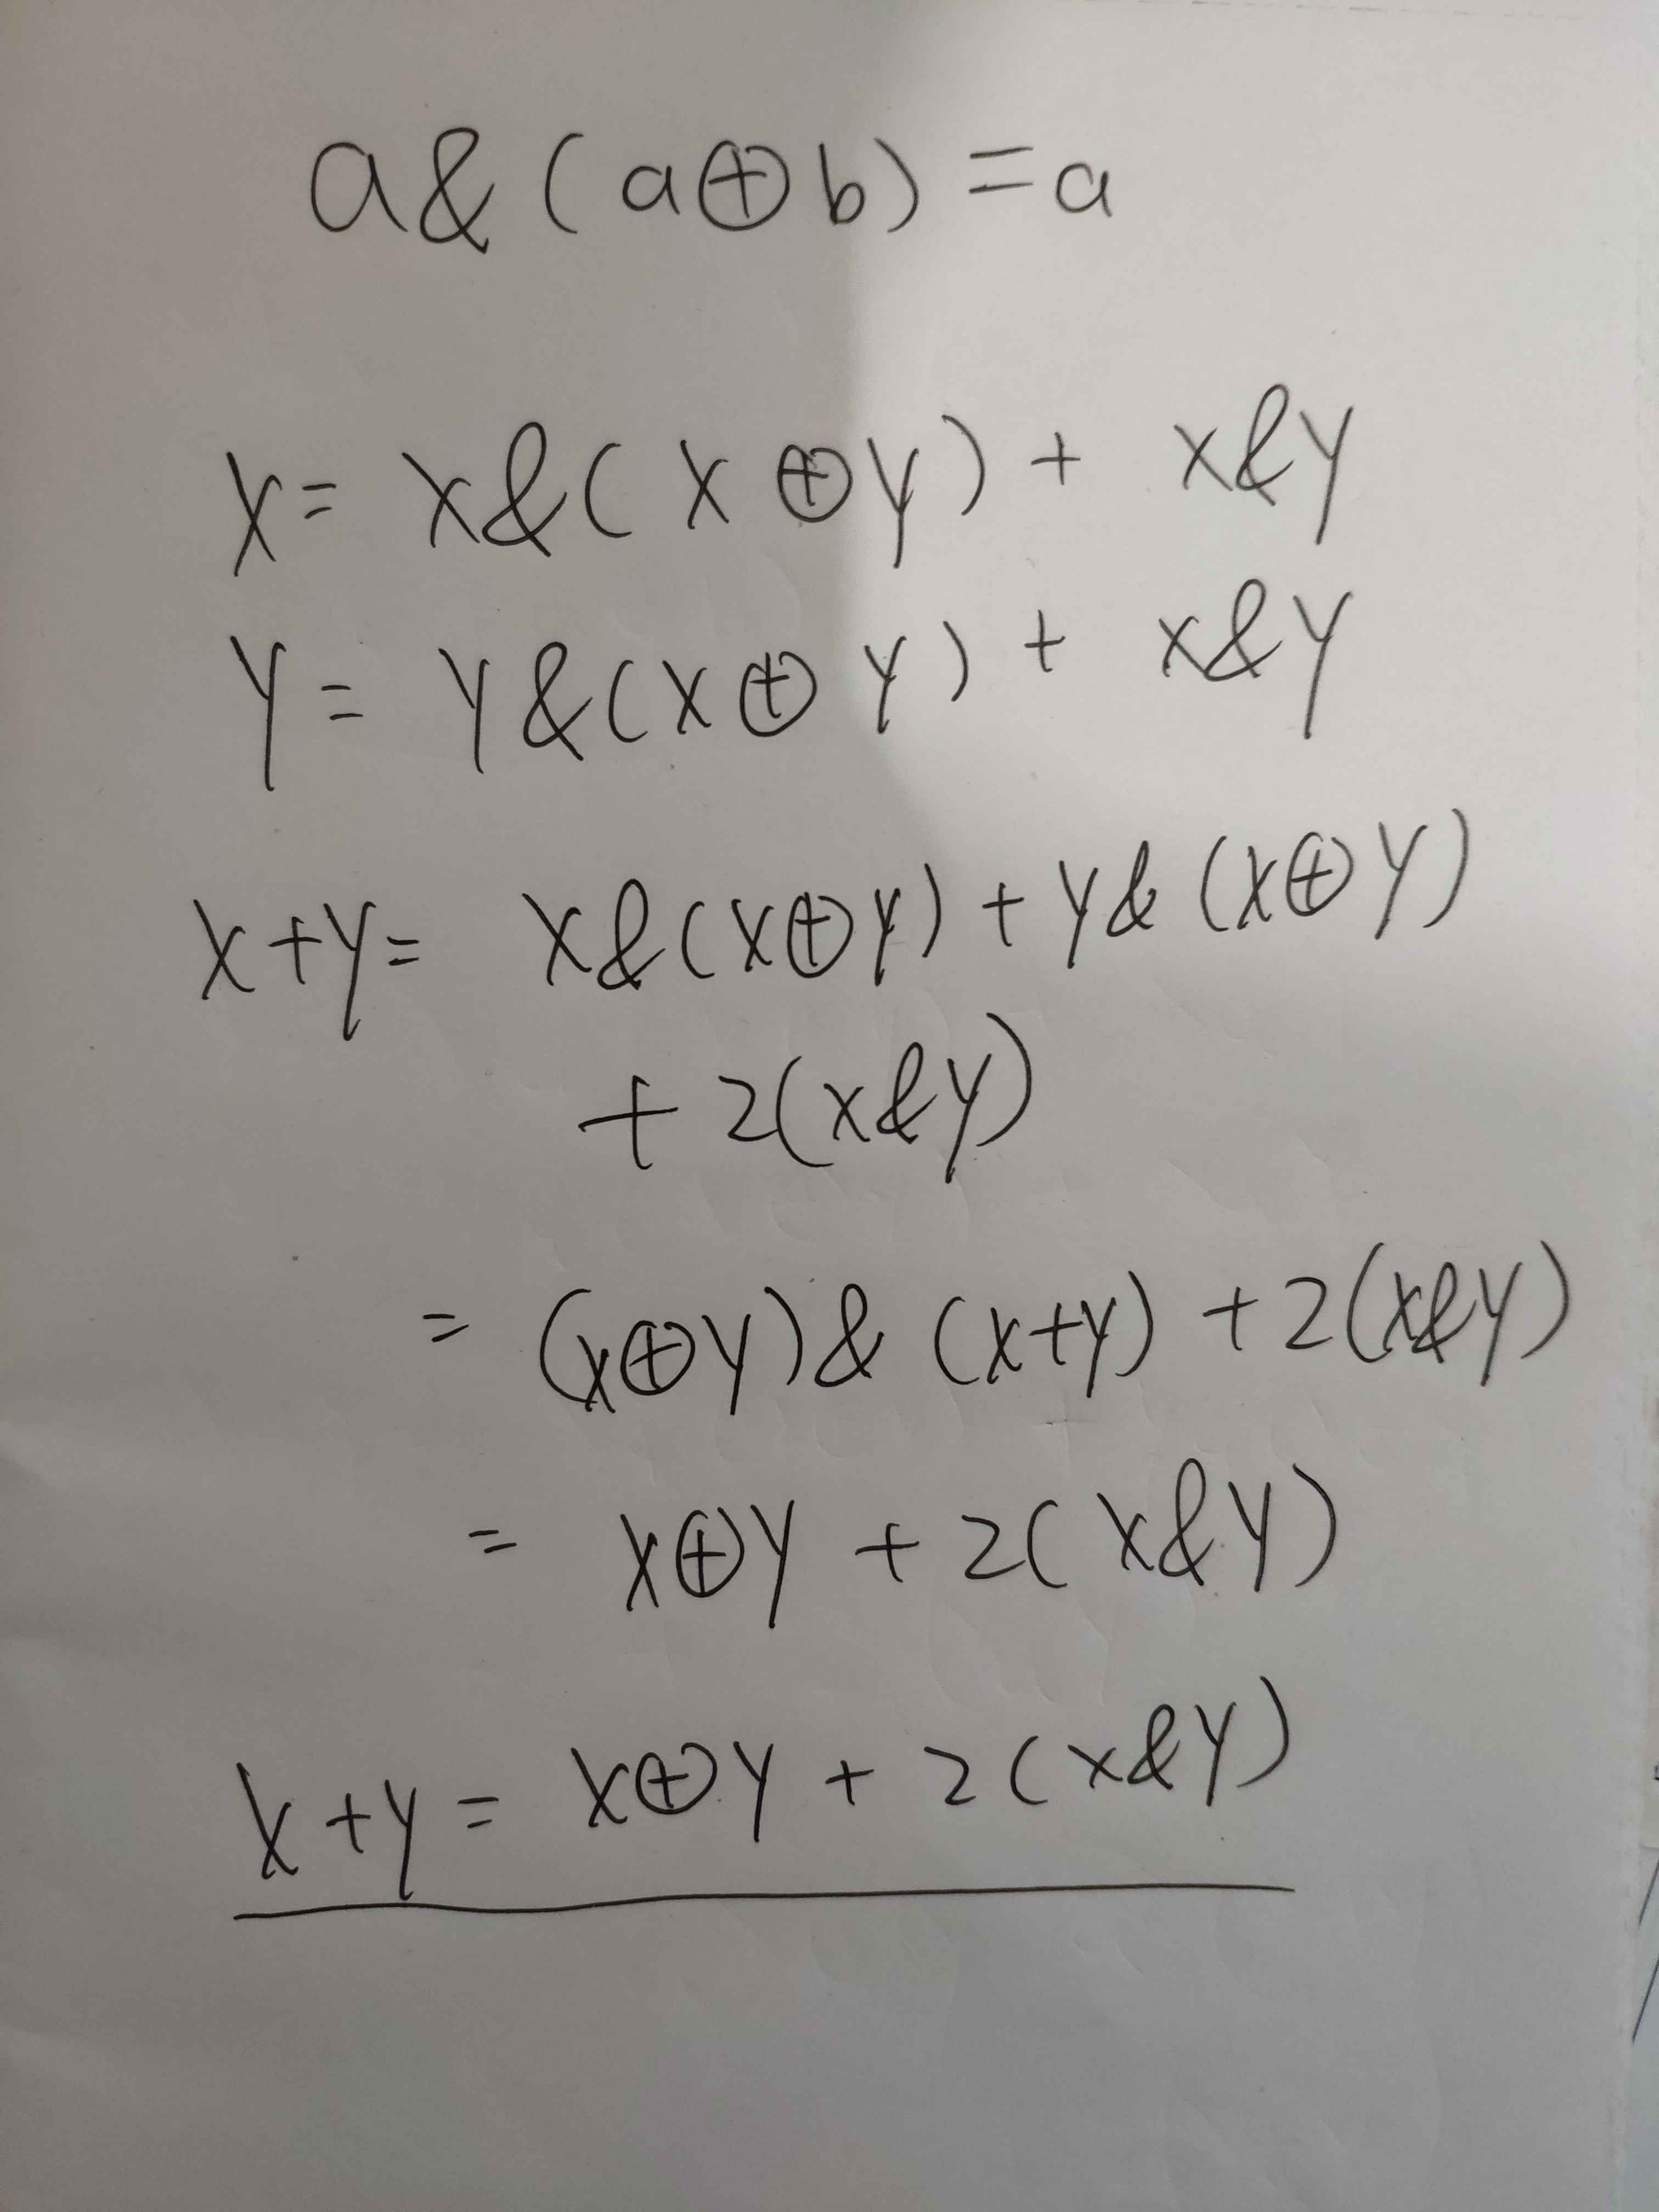 a&(a⊕b)=a
x= x&(x⊕y)+ x&y
y= y&(x⊕y)+ x&y
x+y= x&(x⊕y)+y&(x⊕y)
+2(x&y)
= (x⊕y)&(x+y)+2(x&y)
= x⊕y+2(x&y)
x+y= x⊕y+2(x&y)